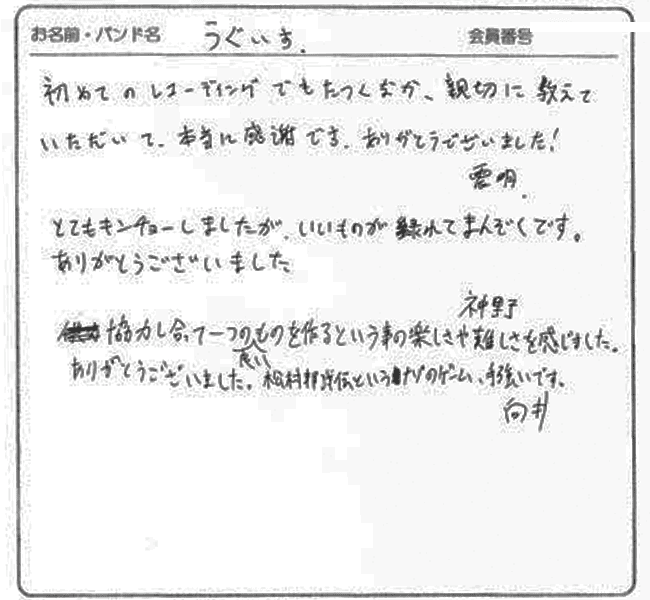 お名前・バンド名 うぐいす. 会員番号
初めてのレコーディングでもたつくなか、親切に教えて
いただいて、本当に感謝です。ありがとうございました!
雲明.
とてもキンチョーしましたが、いいものが録れてまんぞくです。
ありがとうございました
神野
協力し合って一つのものを作るという事の楽しさや難しさを感じました。
良い
ありがとうございました。松村邦洋伝というナゾのゲーム、手強いです。
向井